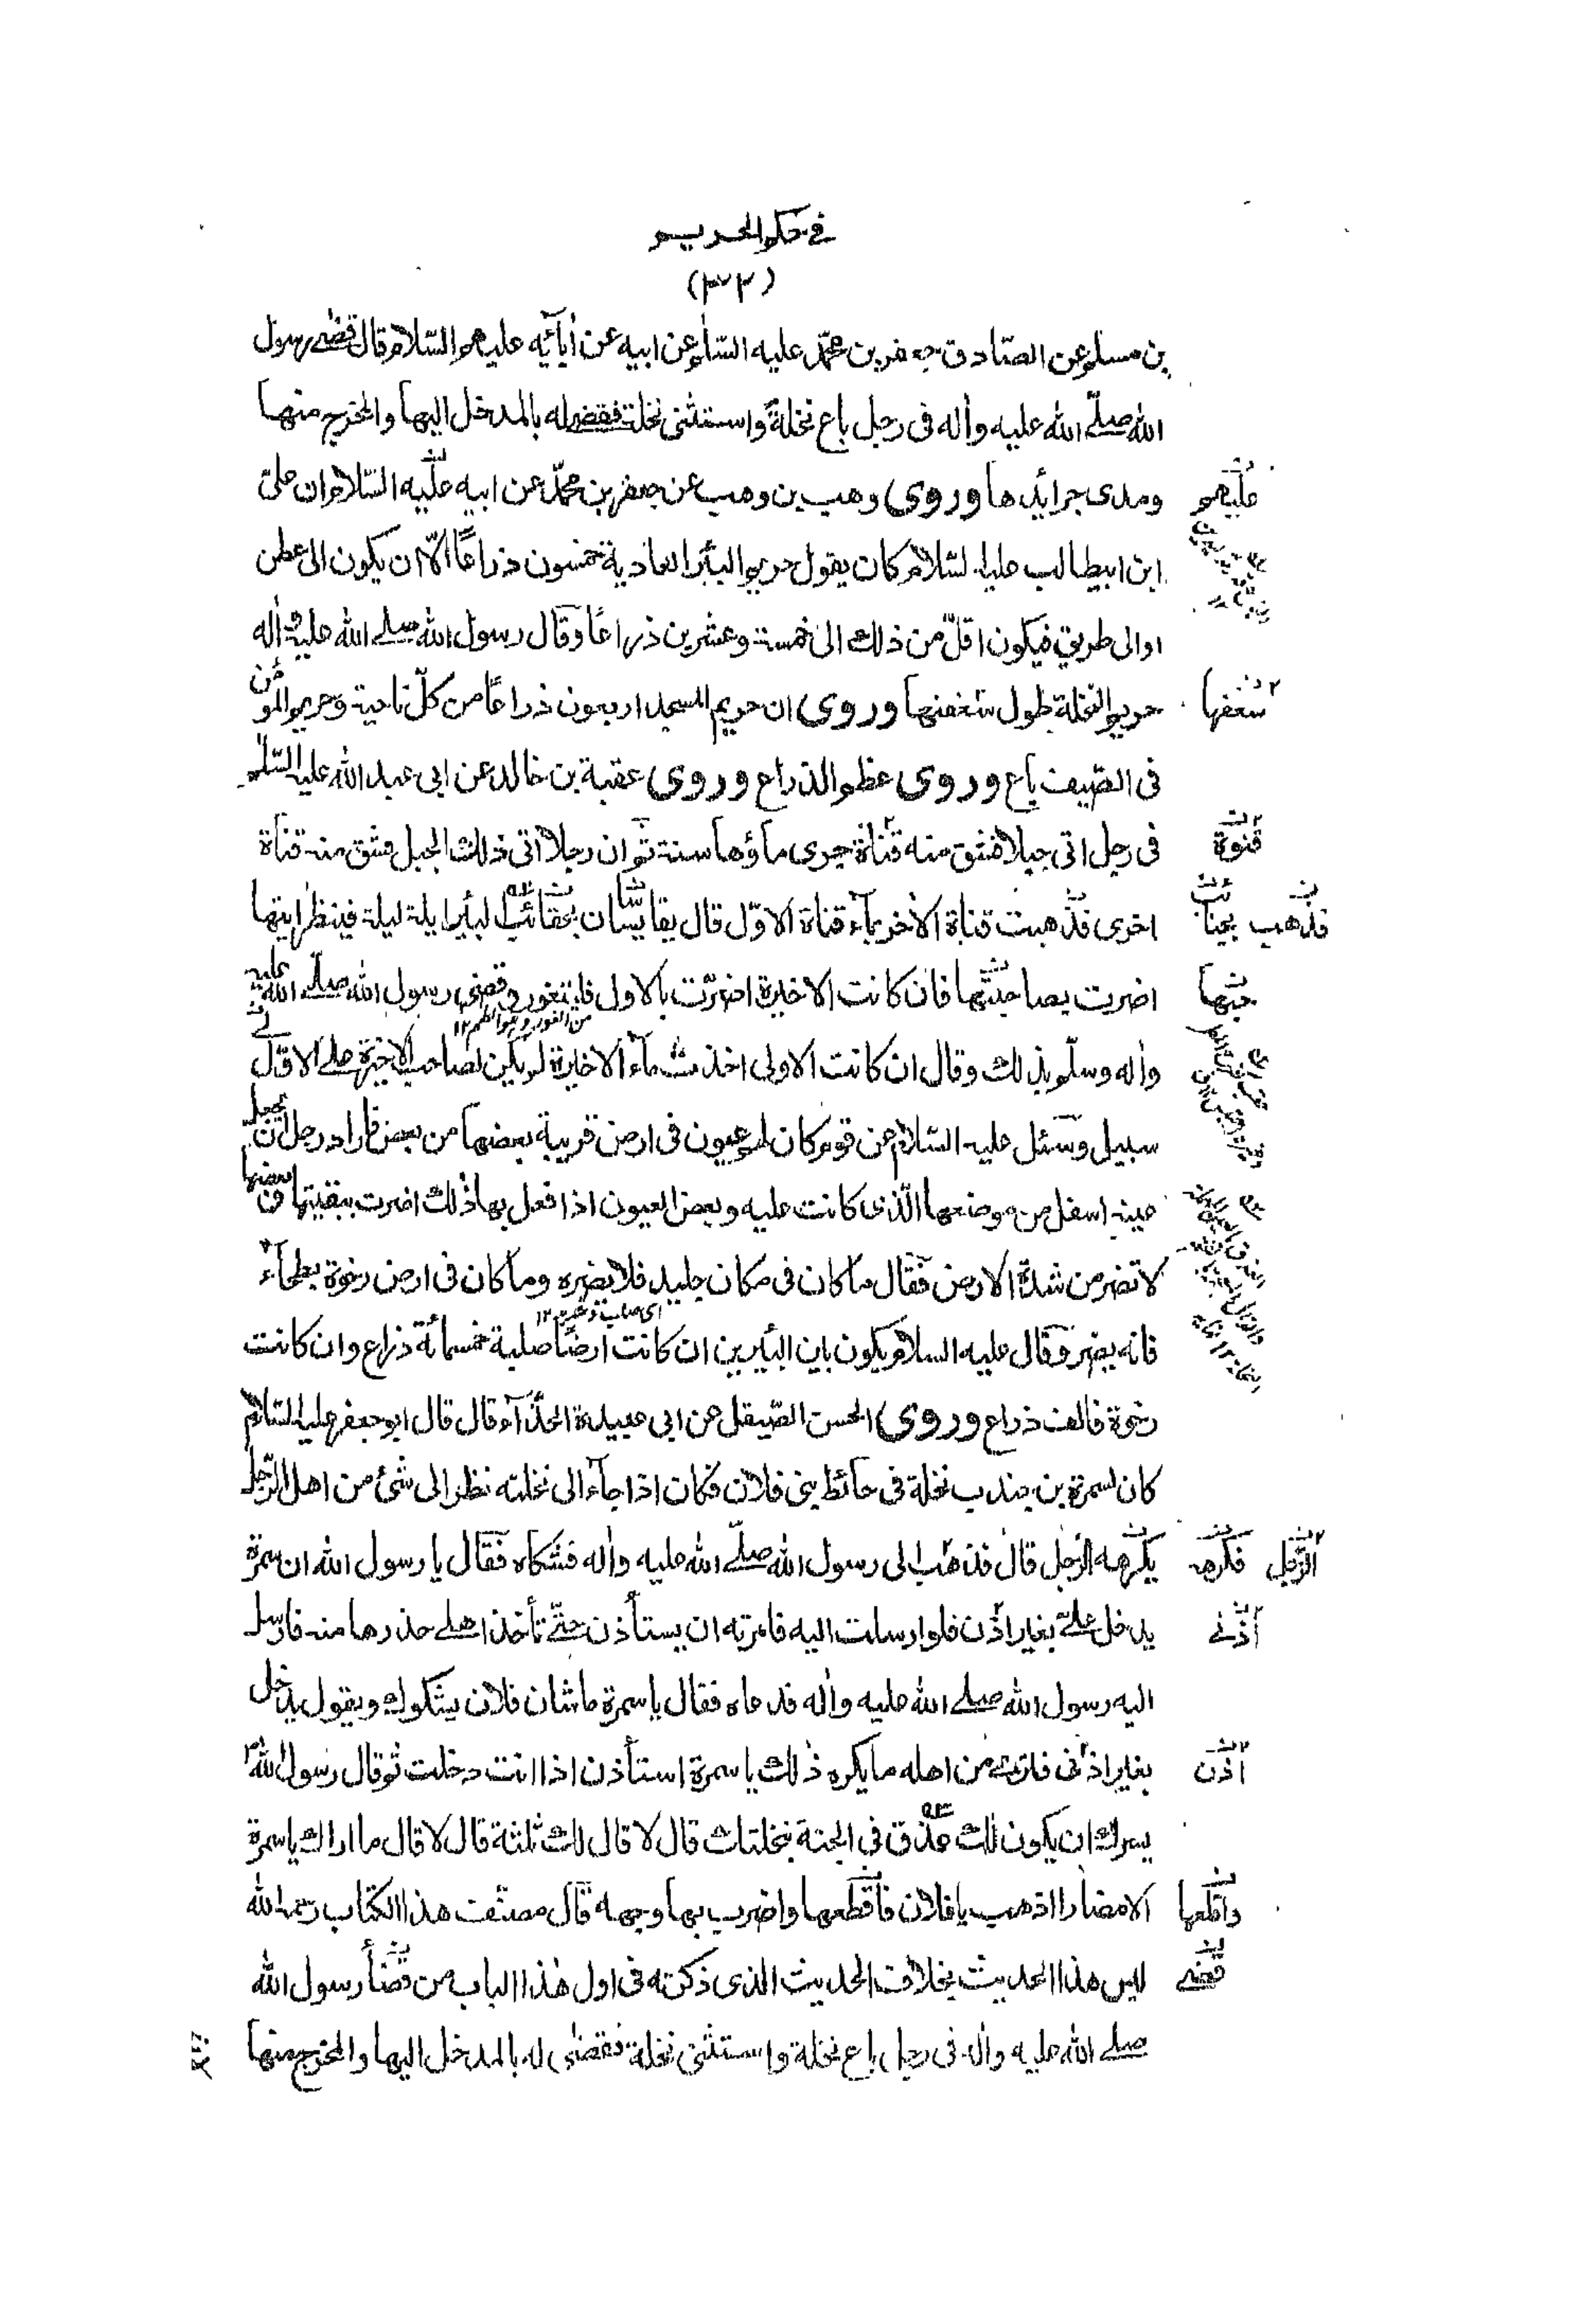 في حكم الحريم
(٣٧٢)
بن مسلم عن الصّادق جعفر بن محمّد عليه السّلم عن ابيه عن أبآئه عليهم السّلام قال قضى رسول
الله صلّى الله عليه واله فى رجل باع نخلةً واستثنى نخلة فقضى له بالمدخل اليها والمخرج منها
ومدى جرائدها وروى وهب بن وهب عن جعفر بن محمّد عن ابيه عليه السّلام ان علىّ
عليهم
ابن ابيطالب عليه السّلام كان يقول حريم البئر العادية خمسون ذراعًا الّا ان يكون الى عطن
او الى طريق فيكون اقلّ من ذلك الى خمسة وعشرين ذراعًا وقال رسول الله صلى الله عليه واله
حريم النّخلة طول سعفها وروى ان حريم المسجد اربعون ذراعًا من كلّ ناحية وحريم المؤمن
سعفها
فى الصّيف باع وروى عظم الذراع وروى عقبة بن خالد عن ابى عبد الله عليه السّلم
فى رجل اتى جبلا فشق منه قناة جرى ماؤها سنة ثم ان رجلا اتى ذلك الجبل فشق منه قناة
قنوة
اخرى فذهبت قناة الأخر بمآء قناة الاوّل قال يقايسان بحقائب البئر ليلة ليلة فينظر ايتها
فذهب
اضرت بصاحبتها فان كانت الاخيرة اضرّت بالاول فلتغور وقضى رسول الله صلّى الله عليه
من الغور وهو الطم ١٢
واله وسلّم بذلك وقال ان كانت الاولى اخذت مآء الاخيرة لم يكن لصاحب الاخيرة على الاوّل
سبيل وسئل عليه السّلام عن قوم كان لهم عيون فى ارض قريبة بعضها من بعض فاراد رجل ان يجعل
عينه اسفل من موضعها الّذى كانت عليه وبعض العيون اذا فعل بها ذلك اضرت ببقيتها وبعضها
لا تضر من شدّة الارض فقال ما كان فى مكان جليد فلا يضره وما كان فى ارض رخوة بطحآء
فانه يضر وقال عليه السلام يكون بين البئرين ان كانت ارضًا صلبة خمسمائة ذراع وان كانت
رخوة فالف ذراع وروى الحسن الصّيقل عن ابى عبيدة الحذّآء قال قال ابو جعفر عليه السّلام
كان لسمرة بن جندب نخلة فى حائط بنى فلان فكان اذا جآء الى نخلته نظر الى شئ من اهل الرّجل
يكرهه الرّجل قال فذهب الى رسول الله صلّى الله عليه واله فشكاه فقال يا رسول الله ان سمرة
فكرهه الرّجل
يدخل علىّ بغير اذن فلو ارسلت اليه فامرته ان يستأذن حتّى تأخذ اهلى حذرها منه فارسل
اذنى
اليه رسول الله صلى الله عليه واله فدعاه فقال يا سمرة ما شان فلان يشكوك ويقول يدخل
بغير اذنى فترى من اهله ما يكره ذلك يا سمرة استأذن اذا انت دخلت ثم قال رسول الله
اذن
يسرك ان يكون لك عذق فى الجنة بنخلتك قال لا قال لك ثلثة قال لا قال ما اراك يا سمرة
الا مضارا اذهب يا فلان فاقطعها واضرب بها وجهه قال مصنّف هذا الكتاب رحمه الله
واقلعها
ليس هذا الحديث بخلاف الحديث الذى ذكرته فى اول هذا الباب من قضآء رسول الله
قضى
صلى الله عليه واله فى رجل باع نخلة واستثنى نخلة فقضى له بالمدخل اليها والمخرج منها